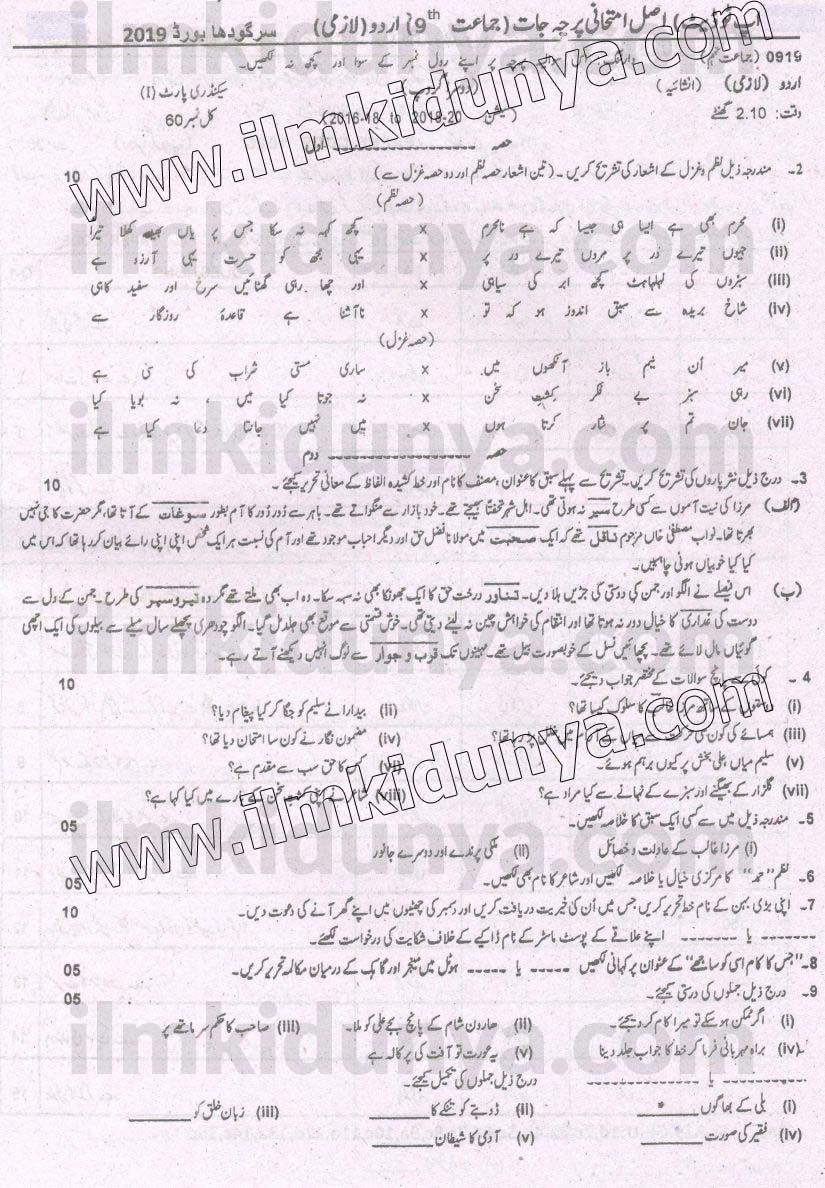 اصل امتحانی پرچہ جات (جماعت 9th) اردو (لازمی) سرگودھا بورڈ 2019
0919 (جماعت نہم) پرچہ پر اپنے رول نمبر کے سوا اور کچھ نہ لکھیں۔
اردو (لازمی) (انشائیہ) (دوسرا گروپ) سیکنڈری پارٹ (I)
وقت: 2.10 گھنٹے (سیشن 2018-20 to 2016-18) کل نمبر 60
حصہ اول
2۔ مندرجہ ذیل نظم و غزل کے اشعار کی تشریح کریں۔ (تین اشعار حصہ نظم اور دو حصہ غزل سے) 10
(حصہ نظم)
(i) محرم بھی ہے ایسا ہی جیسا کہ ہے نامحرم x کچھ کہہ نہ سکا جس پر یاں بھید کھلا تیرا
(ii) جیوں تیرے در پر مروں تیرے در پر x یہی مجھ کو حسرت یہی آرزو ہے
(iii) سبزوں کی لہلہاہٹ کچھ ابر کی سیاہی x اور چھا رہی گھٹائیں سرخ اور سفید کاہی
(iv) شاخ بریدہ سے سبق اندوز ہو کہ تو x ناآشنا ہے قاعدۂ روزگار سے
(حصہ غزل)
(v) میر اُن نیم باز آنکھوں میں x ساری مستی شراب کی سی ہے
(vi) رہی سبز بے فکر کشتِ سخن x نہ جوتا کیا میں، نہ بویا کیا
(vii) جان تم پر نثار کرتا ہوں x میں نہیں جانتا دعا کیا ہے
حصہ دوم
3۔ درج ذیل نثرپاروں کی تشریح کریں۔ تشریح سے پہلے سبق کا عنوان، مصنف کا نام اور خط کشیدہ الفاظ کے معانی تحریر کیجئے۔ 10
(الف) مرزا کی نیت آموں سے کسی طرح سیر نہ ہوتی تھی۔ اہل شہر تحفتاً بھیجتے تھے۔ خود بازار سے منگواتے تھے۔ باہر سے دُور دُور کا آم بطور سوغات کے آتا تھا، مگر حضرت کا جی نہیں
بھرتا تھا۔ نواب مصطفیٰ خاں مرحوم ناقل تھے کہ ایک صحبت میں مولانا فضل حق اور دیگر احباب موجود تھے اور آم کی نسبت ہر ایک شخص اپنی اپنی رائے بیان کر رہا تھا کہ اس میں
کیا کیا خوبیاں ہونی چاہئیں۔
(ب) اس فیصلے نے الگو اور جمن کی دوستی کی جڑیں ہلا دیں۔ تناور درخت حق کا ایک جھونکا بھی نہ سہہ سکا۔ وہ اب بھی ملتے تھے مگر وہ تیر و سپر کی طرح۔ جمن کے دل سے
دوست کی غداری کا خیال دور نہ ہوتا تھا اور انتقام کی خواہش چین نہ لینے دیتی تھی۔ خوش قسمتی سے موقع بھی جلد مل گیا۔ الگو چودھری پچھلے سال میلے سے بیلوں کی ایک اچھی
گوئیاں مول لائے تھے۔ پچھائیں نسل کے خوبصورت بیل تھے۔ مہینوں تک قرب و جوار سے لوگ انہیں دیکھنے آتے رہے۔
4۔ پانچ سوالات کے مختصر جواب دیجئے۔ 10
(i) دوستوں کے ساتھ مرزا کا سلوک کیسا تھا؟ (ii) بیدارا نے سلیم کو جگا کر کیا پیغام دیا؟
(iii) ہمسائے کی کون سی (iv) مضمون نگار نے کون سا امتحان دیا تھا؟
(v) سلیم میاں بلی بخش پر کیوں برہم ہوئے۔ (vi) کس کا حق سب سے مقدم ہے؟
(vii) گلزار کے بھیگنے اور سبزے کے نہانے سے کیا مراد ہے؟ (viii) شاعر نے اپنی کشتِ سخن کے بارے میں کیا کہا ہے؟
5۔ مندرجہ ذیل میں سے کسی ایک سبق کا خلاصہ لکھیں۔ 05
(i) مرزا غالب کے عادات و خصائل (ii) ملکی پرندے اور دوسرے جانور
6۔ نظم "حمد" کا مرکزی خیال یا خلاصہ لکھیں اور شاعر کا نام بھی لکھیں۔ 05
7۔ اپنی بڑی بہن کے نام خط تحریر کریں جس میں اُن کی خیریت دریافت کریں اور دسمبر کی چھٹیوں میں اپنے گھر آنے کی دعوت دیں۔ 10
یا اپنے علاقے کے پوسٹ ماسٹر کے نام ڈاکیے کے خلاف شکایت کی درخواست لکھئے۔
8۔ "جس کا کام اسی کو ساجھے" کے عنوان پر کہانی لکھیں یا ہوٹل میں منیجر اور گاہک کے درمیان مکالمہ تحریر کریں۔ 05
9۔ درج ذیل جملوں کی درستی کیجئے۔ 05
(i) اگر ممکن ہو سکے تو میرا کام کر دیجئے۔ (ii) ہارون شام کے پانچ بجے علی کو ملا۔ (iii) صاحب کا حکم سر ماتھے پر
(iv) براہ مہربانی فرما کر خط کا جواب جلد دینا (v) یہ عورت تو آفت کی پرکالہ ہے
یا درج ذیل جملوں کی تکمیل کیجئے۔
(i) بلی کے بھاگوں (ii) ڈوبتے کو تنکے کا (iii) زبان خلق کو
(iv) فقیر کی صورت (v) آدمی کا شیطان
www.ilmkidunya.com
www.ilmkidunya.com
ilmkidunya.com
ilmkidunya.com
ilmkidunya.com
ilmkidunya.com
ilmkidunya.com